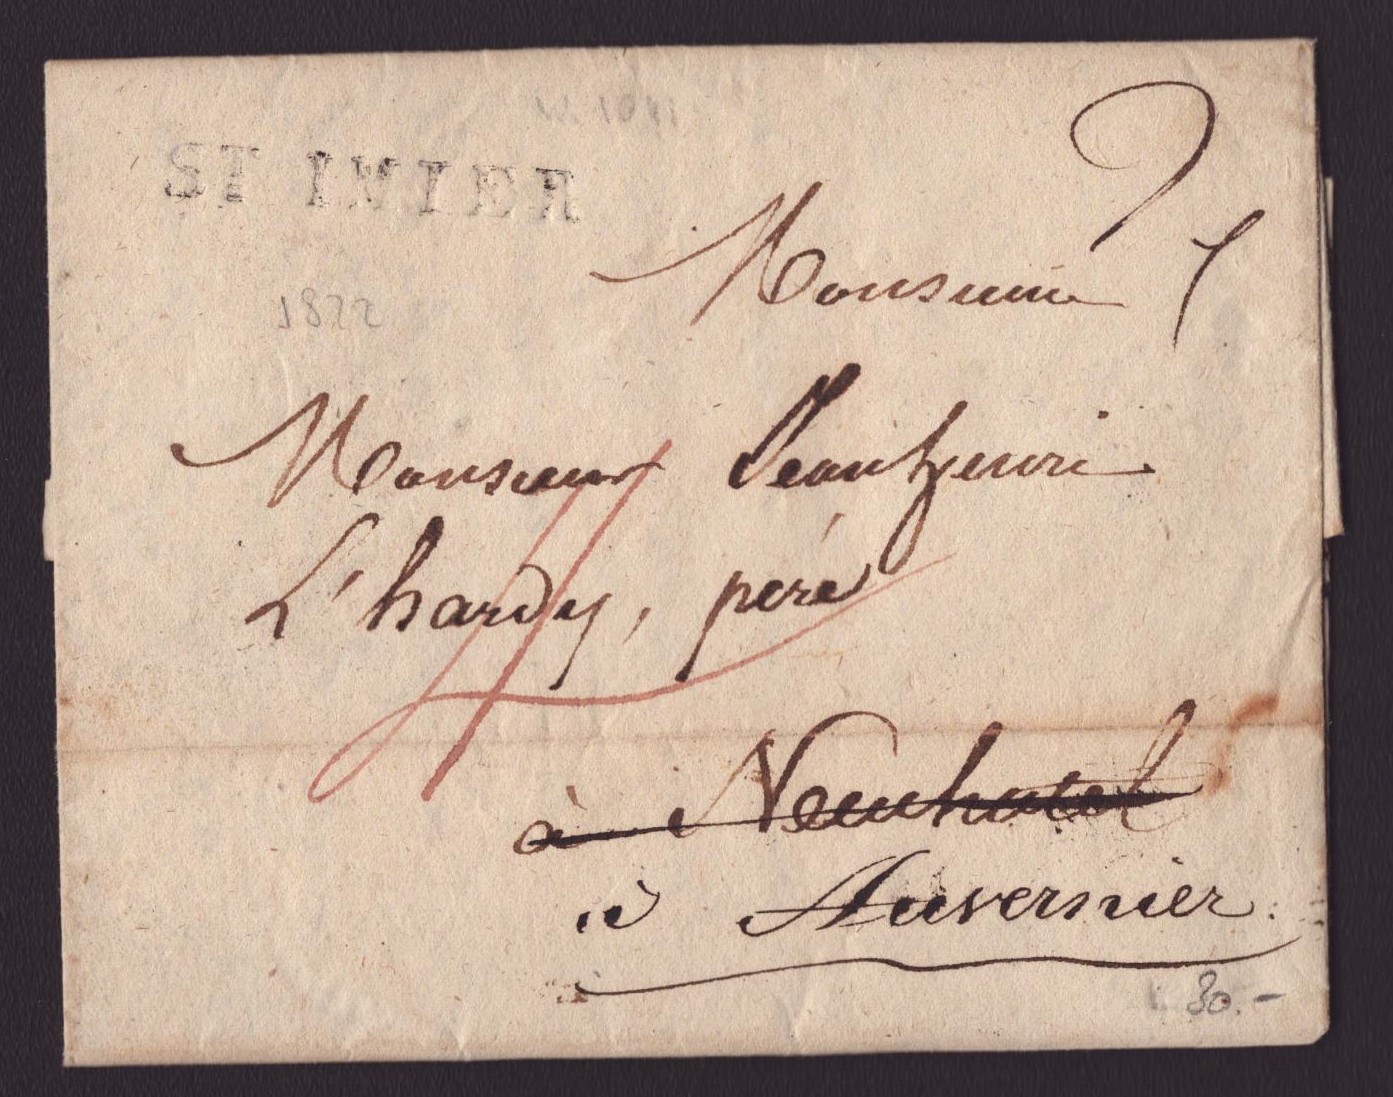 ST IMIER
1822
Monsieur
Monsieur Jean henri
L'hardy, péré
à Neuchatel
à Auvernier.
30.-